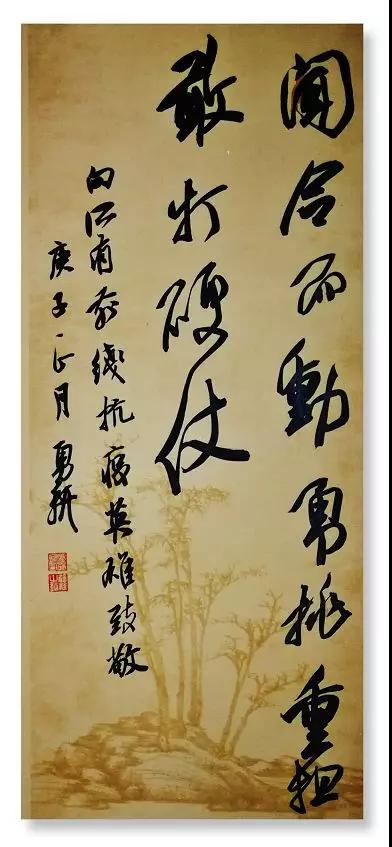 闻令而動勇挑重担
敢打硬仗
向江南前线抗疫英雄致敬
庚子正月勇